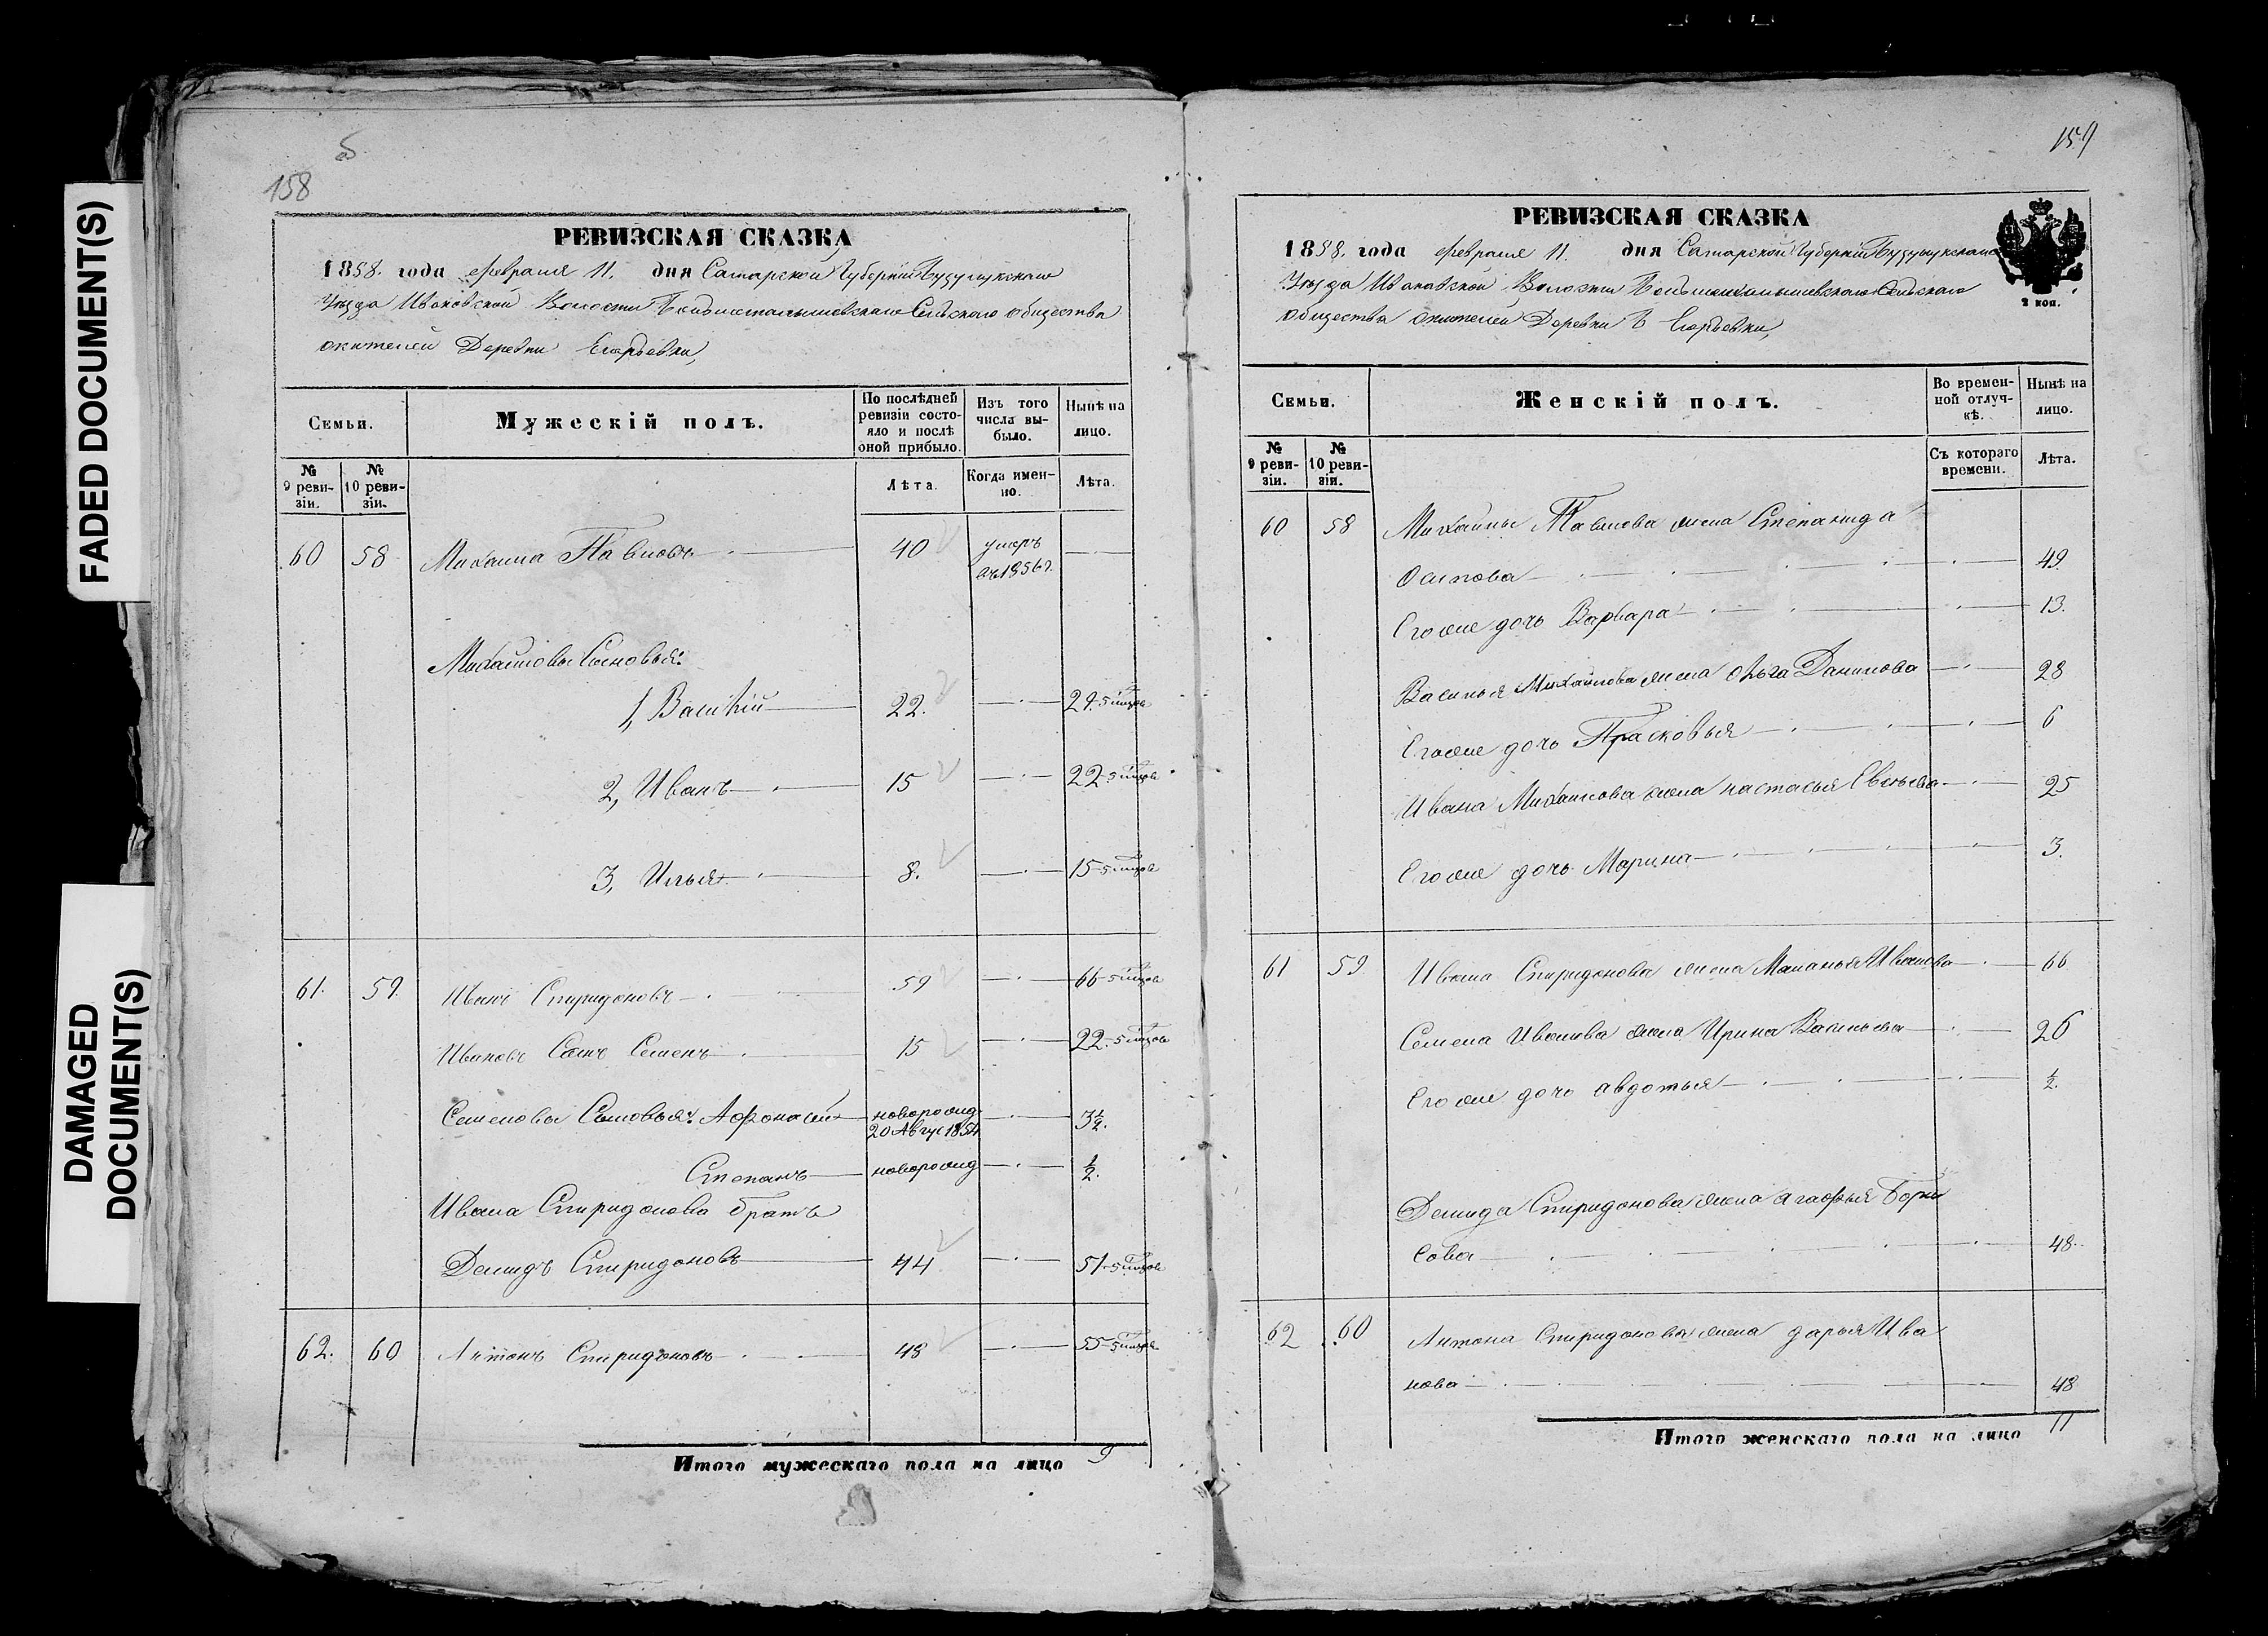 FADED DOCUMENT(S)
DAMAGED
DOCUMENT(S)
158
РЕВИЗСКАЯ СКАЗКА
1858. года февраля 11. дня Самарской Губернии Бузулукскаго
Уезда Ивановской Волости Сельскаго общества
жителей Деревни Егорьевки,
Семьи.
Мужескій полъ.
По послѣдней
ревизіи состо-
яло и послѣ
оной прибыло.
Изъ того
числа вы-
было.
Нынѣ на
лицо.
№
9 реви-
зіи.
№
10 реви-
зіи.
Лѣта.
Когда имен-
но.
Лѣта.
60 58 Михаила Павловъ 40 умеръ
въ 1856 г.
Михайловы Сыновья:
1, Василій 22. 29
2, Иванъ 15 22
3, Илья 8. 15
61. 59. Иванъ Спиридоновъ 59 66
Ивановъ Сынъ Семенъ 15 22
Семеновы Сыновья: Афонасий новорожд 3½.
20 Авгус 1854
Степанъ новорожд ½.
Ивана Спиридонова братъ
Демидъ Спиридоновъ 44 51
62. 60 Антонъ Спиридоновъ 48 55
Итого мужескаго пола на лицо 9
159
РЕВИЗСКАЯ СКАЗКА
1858. года февраля 11. дня Самарской Губерніи Бузулукскаго
Уезда Ивановской Волости Сельскаго
общества жителей Деревни Егорьевки,
2 коп.
Семьи.
Женскій полъ.
Во времен-
ной отлуч-
кѣ.
Нынѣ на
лицо.
№
9 реви-
зіи.
№
10 реви-
зіи.
Съ котораго
времени.
Лѣта.
60 58 Михайлы Павлова жена Степанида
Осипова 49
Егоже дочь Варвара 13.
Василья Михайлова жена Ольга Данилова 28
Егоже дочь Прасковья 6
Ивана Михайлова жена настасья 25
Егоже дочь Марина 3.
61 59 Ивана Спиридонова жена Маланья Иванова 66
Семена Иванова жена Ирина Васильева 26
Егоже дочь авдотья ½.
Демида Спиридонова жена агафья Бори
сова 48.
62 60 Антона Спиридонова жена дарья Ива
нова 48
Итого женскаго пола на лицо 11